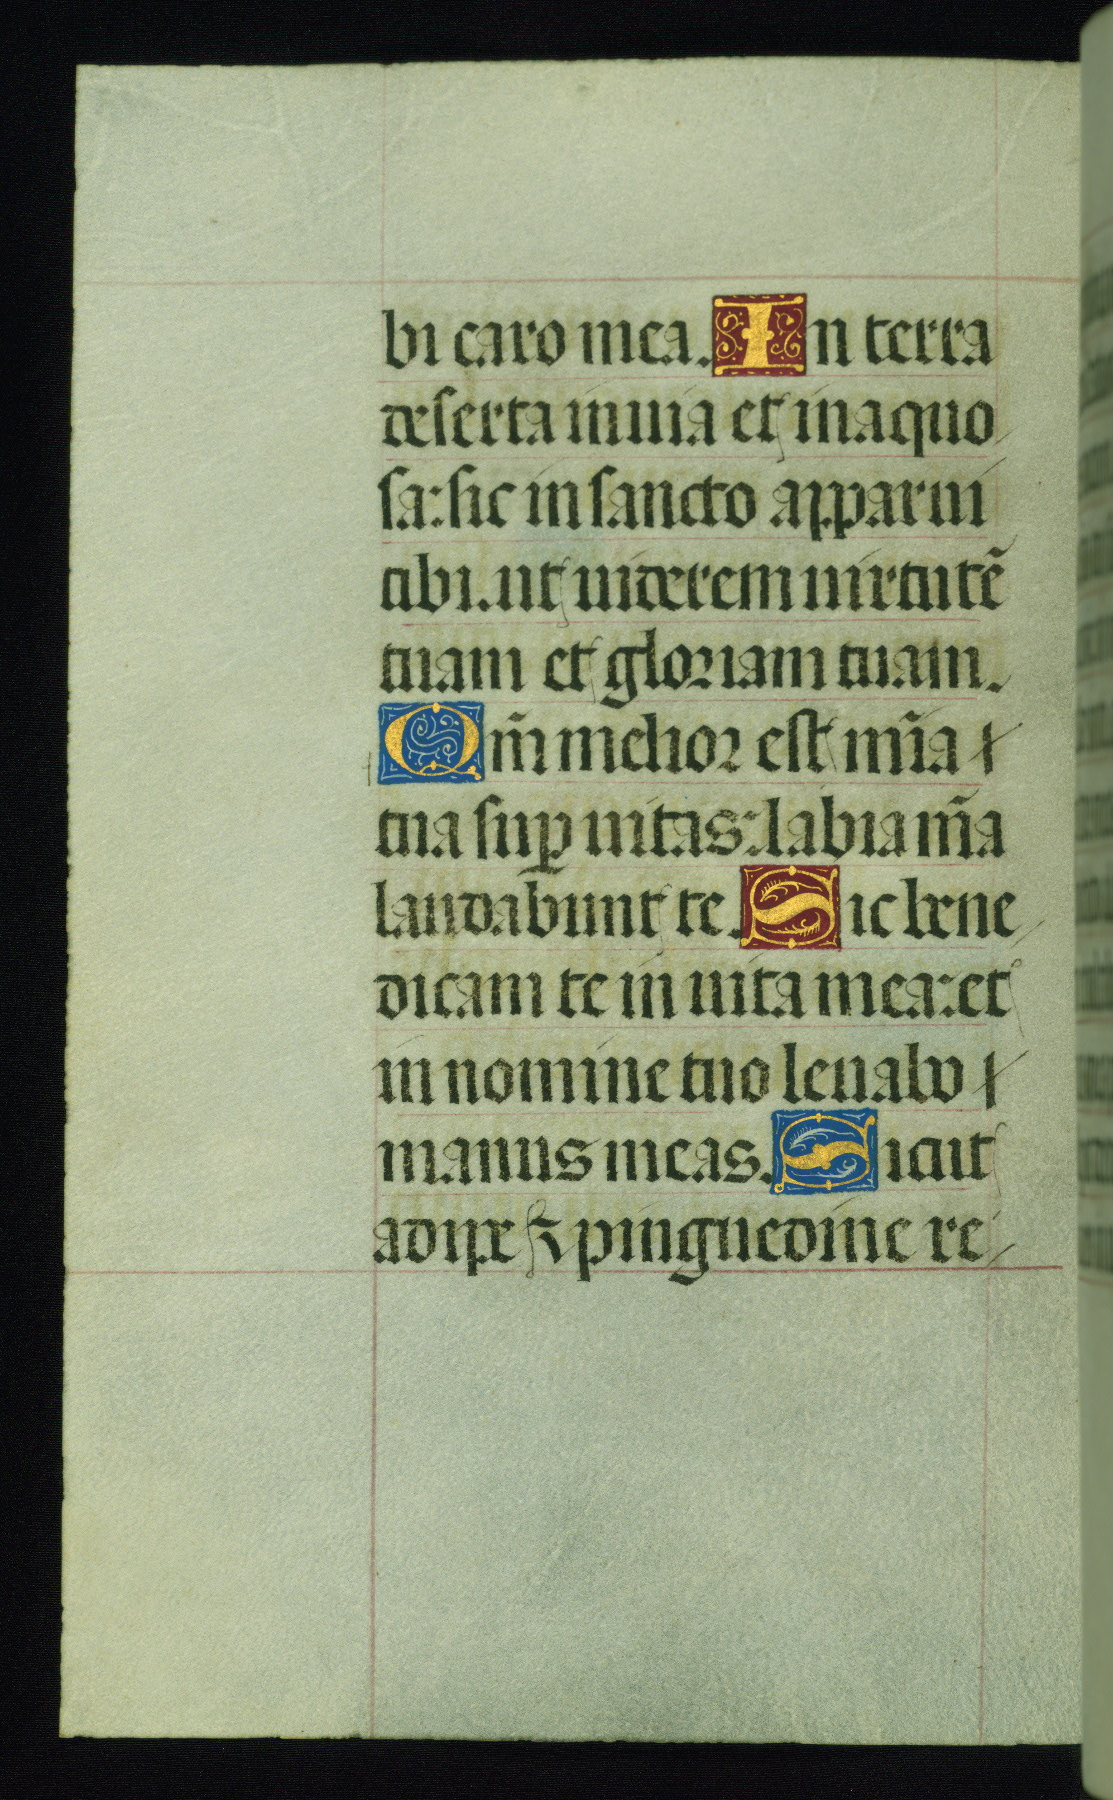 bi caro mea. In terra
deserta inuia et inaquo
sa: sic in sancto apparui
tibi. ut uiderem uirtutẽ
tuam et gloriam tuam.
Qm̃ melior est mĩa
tua suꝑ uitas: labia mẽa
laudabunt te. Sic bene
dicam te in uita mea: et
in nomine tuo leuabo
manus meas. Sicut
adipe ⁊ pinguedine re